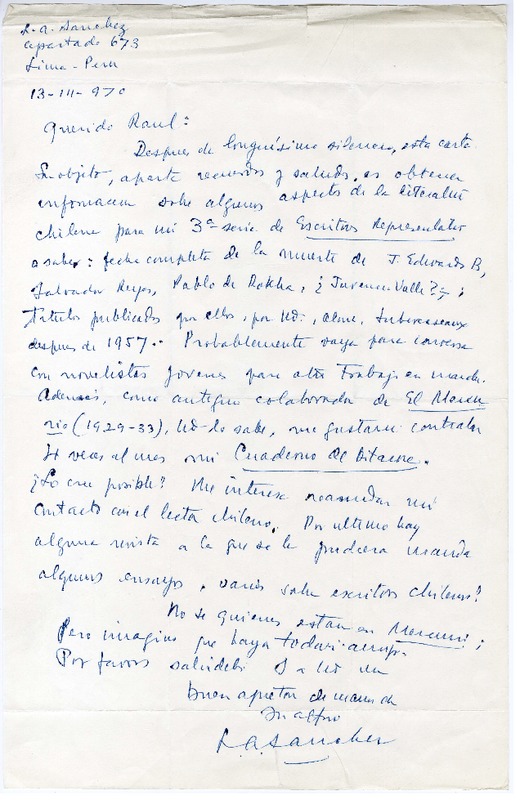 L. A. Sanchez
apartado 673
Lima - Peru
13-III-970
Querido Raul:
Despues de longuísimo silencio, esta carta.
Su objeto, aparte recuerdos y saludos, es obtener
informacion sobre algunos aspectos de la literatura
chilena para mi 3ª serie de Escritores Representativos
a saber: fecha completa de la muerte de J. Edwards B,
Salvador Reyes, Pablo de Rokha, ¿Juvencio Valle?;
títulos publicados por ellos, por Ud., Alone, Subercaseaux
despues de 1957.- Probablemente vaya para conversar
con novelistas jovenes para otro trabajo en marcha.
Además, como antiguo colaborador de El Mercu
rio (1929-33), Ud. lo sabe, me gustaria contratar
veces al mes mi Cuaderno de Bitacora.
¿Lo cree posible? Me interesa reanudar mi
contacto con el lector chileno. Por ultimo hay
alguna revista a la que se le pudiera mandar
algunos ensayos, varios sobre escritores chilenos?
No se quienes estan en Mercurio;
Pero imagino que haya todavia amigos.
Por favor saludelos y a Ud. un
buen apreton de manos de
su afmo
L. A. Sanchez